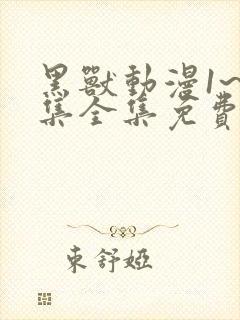 黑獸動漫1~
集全集免費
東舒婭